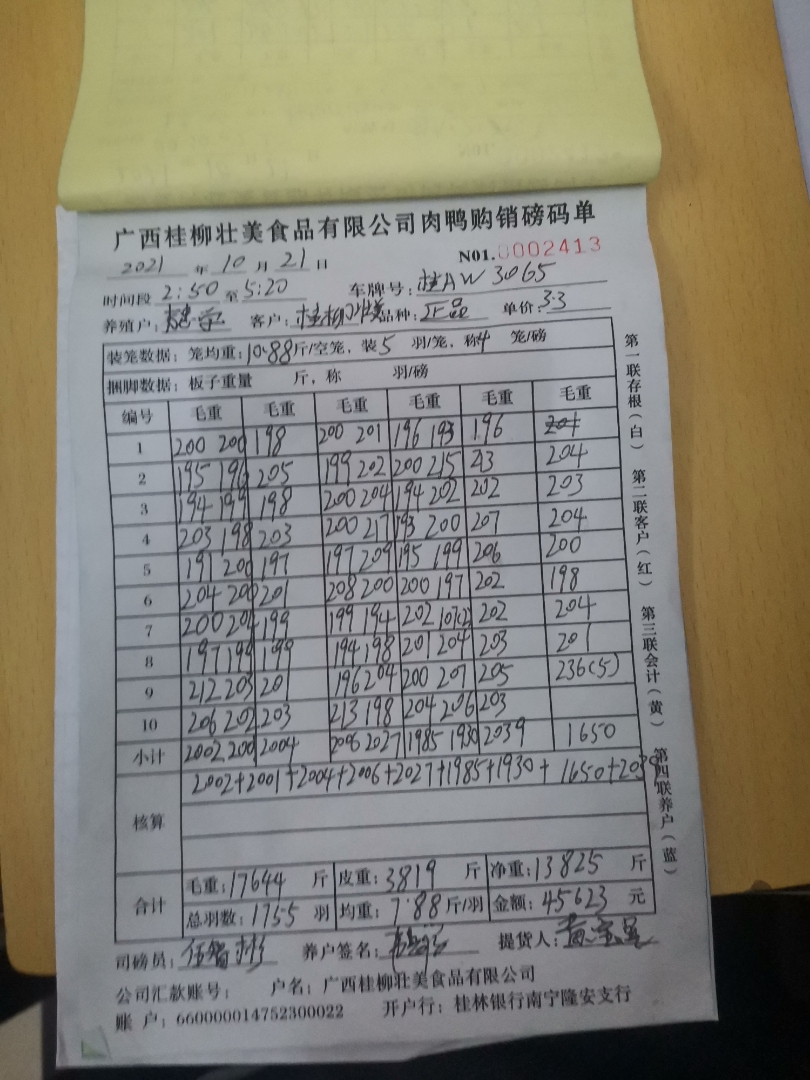 广西桂柳壮美食品有限公司肉鸭购销磅码单
NO1.0002413
2021 年 10 月 21 日
时间段 2:50 至 5:20 车牌号: 桂AW3065
养殖户: 客户: 桂柳 品种: 正品 单价: 3.3
装笼数据: 笼均重: 10.88 斤/空笼, 装 5 羽/笼, 称 4 笼/磅
捆脚数据: 板子重量 斤, 称 羽/磅
编号 毛重 毛重 毛重 毛重 毛重 毛重
1 200 200 198 200 201 196 193 196 201
2 195 196 205 199 202 200 215 213 204
3 194 199 198 200 204 194 202 202 203
4 203 198 203 200 217 193 200 207 204
5 191 200 197 197 209 195 199 206 200
6 204 200 201 208 200 200 197 202 198
7 200 204 199 199 194 202 107(2) 202 204
8 197 199 199 194 198 201 204 203 201
9 212 203 201 196 204 200 207 205 236(5)
10 206 202 203 213 198 204 206 203
小计 2002 200 2004 2006 2027 1985 1930 2039 1650
核算 2002+2001+2004+2006+2027+1985+1930+1650+2039
合计 毛重: 17644 斤 皮重: 3819 斤 净重: 13825 斤
总羽数: 1755 羽 均重: 7.88 斤/羽 金额: 45623 元
司磅员: 养户签名: 提货人:
公司汇款账号: 户名: 广西桂柳壮美食品有限公司
账 户: 660000014752300022 开户行: 桂林银行南宁隆安支行
第一联存根(白) 第二联客户(红) 第三联会计(黄) 第四联养户(蓝)